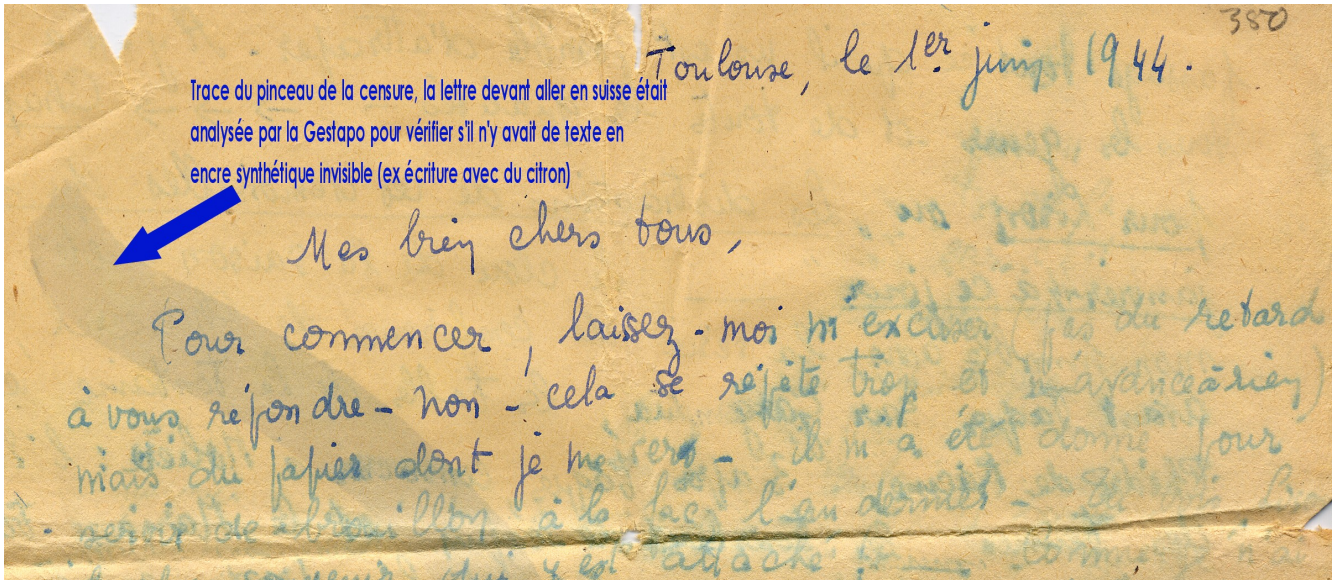 380
Toulouse, le 1er juin 1944.
Trace du pinceau de la censure, la lettre devant aller en suisse était
analysée par la Gestapo pour vérifier s'il n'y avait de texte en
encre synthétique invisible (ex écriture avec du citron)
Mes bien chers tous,
Pour commencer, laissez-moi m'excuser (pas du retard
à vous répondre - non - cela se répète trop et n'avance à rien)
mais du papier dont je me sers - Il m'a été donné pour
servir de brouillon à la fac, l'an dernier -
qui y est attaché